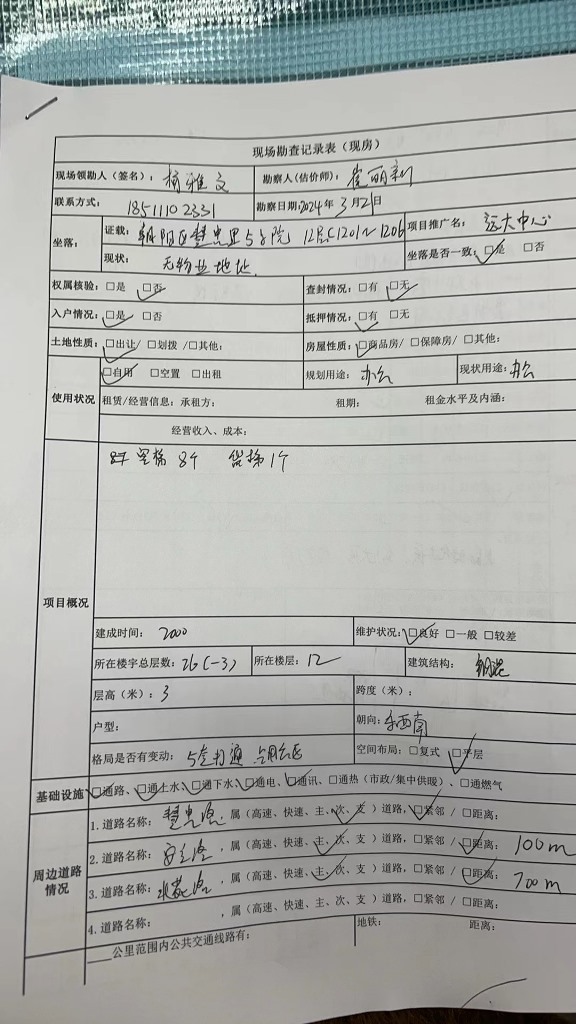 现场勘查记录表（现房）
现场领勘人（签名）：杨雅文 勘察人（估价师）：崔丽新
联系方式：18511102331 勘察日期：2024年3月21日
坐落： 证载：朝阳区慧忠里5号院 12层C1201~1206 项目推广名：远大中心
现状：无物业地址. 坐落是否一致：□是 □否
权属核验：□是 □否 查封情况：□有 □无
入户情况：□是 □否 抵押情况：□有 □无
土地性质：□出让/ □划拨 /□其他： 房屋性质：□商品房/ □保障房/ □其他：
使用状况 □自用 □空置 □出租 规划用途：办公 现状用途：办公
租赁/经营信息：承租方： 租期： 租金水平及内涵：
经营收入、成本：
客梯 8个 货梯1个
项目概况
建成时间：2000 维护状况：□良好 □一般 □较差
所在楼宇总层数：26(-3) 所在楼层：12 建筑结构：钢混
层高（米）：3 跨度（米）：
户型： 朝向：东西南
格局是否有变动：5套打通 空间布局：□复式 □平层
基础设施 □通路、□通上水、□通下水、□通电、□通讯、□通热（市政/集中供暖）、□通燃气
周边道路情况 1.道路名称：慧忠路，属（高速、快速、主、次、支 ）道路，□紧邻 / □距离：
2.道路名称：安立路，属（高速、快速、主、次、支 ）道路，□紧邻 / □距离：100m
3.道路名称：，属（高速、快速、主、次、支 ）道路，□紧邻 / □距离：700m
4.道路名称： ，属（高速、快速、主、次、支 ）道路，□紧邻 / □距离：
___公里范围内公共交通线路有： 地铁： 距离：